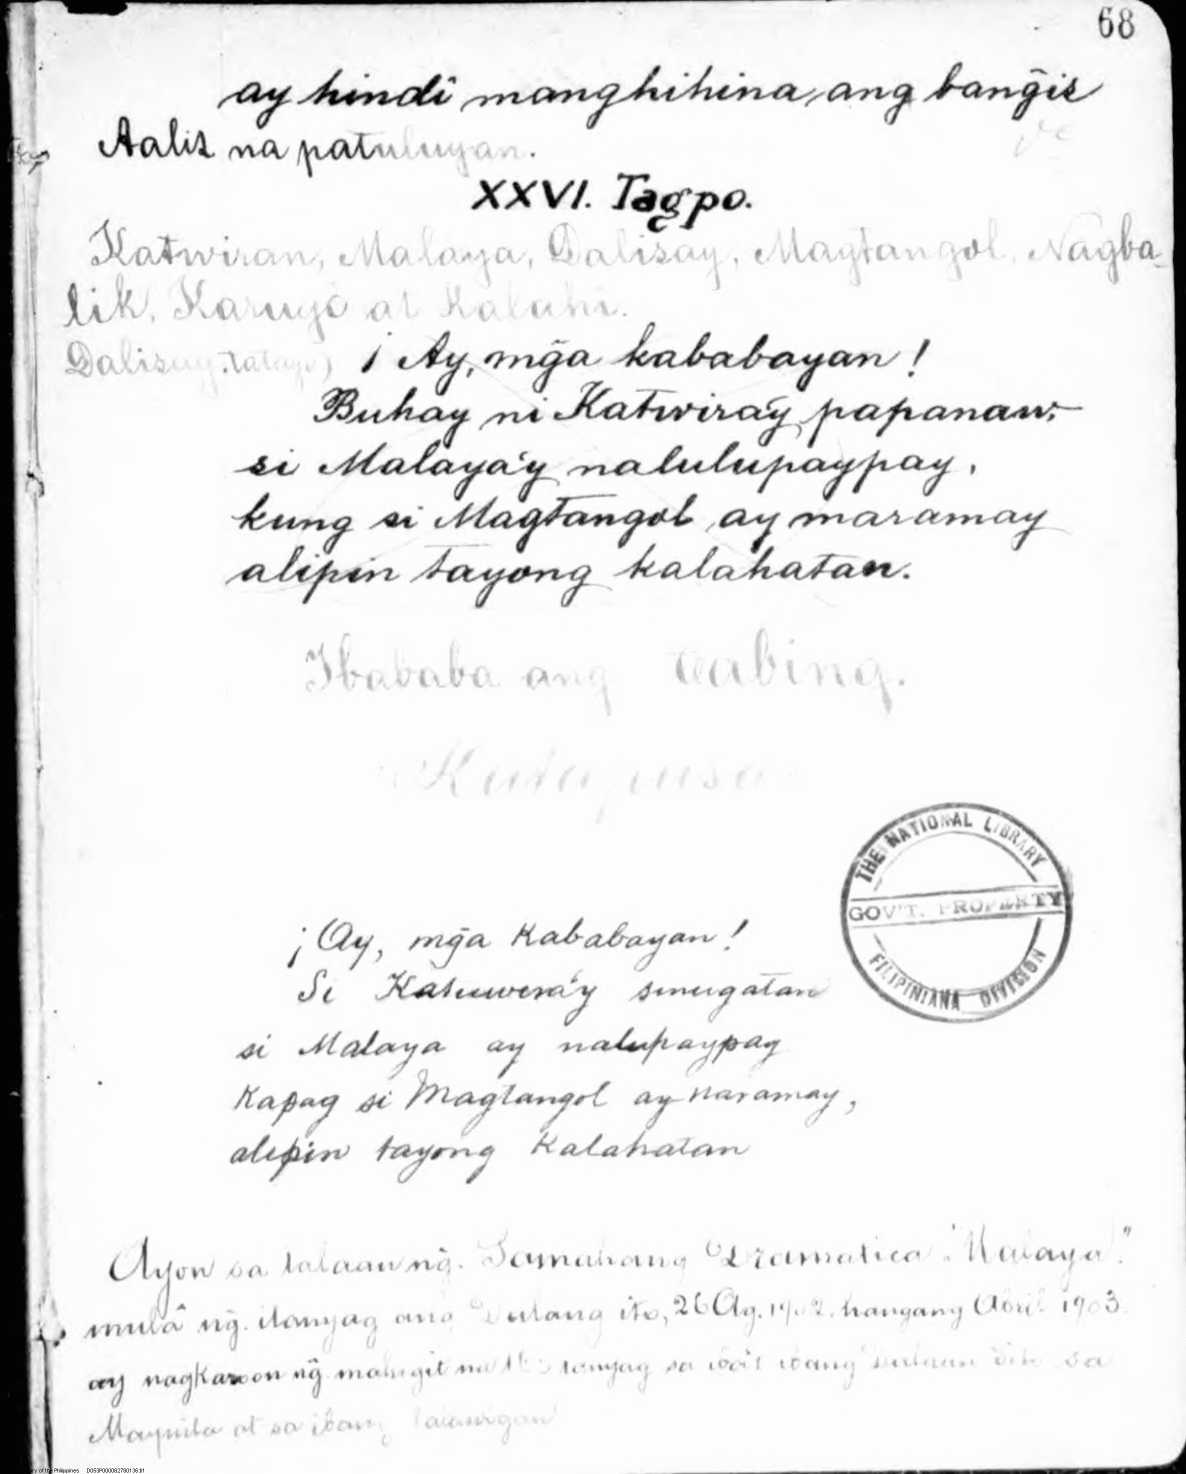 68
ay hindî manghihina ang bang̃is
Aalis na patuluyan.
XXVI. Tagpo.
Katwiran, Malaya, Dalisay, Magtangol, Nagba-
lik, at
Dalisay. ¡ Ay, mg̃a kababayan!
Buhay ni Katwira'y papanaw,
si Malaya'y nalulupaypay,
kung si Magtangol ay maramay
alipin tayong kalahatan.
Ibababa ang tabing.
THE NATIONAL LIBRARY
GOV'T. PROPERTY
FILIPINIANA DIVISION
¡ Ay, mg̃a kababayan!
Si sinugatan
si Malaya ay nalupaypay
kapag si Magtangol ay naramay,
alipin tayong kalahatan
Ayon sa talaan ng̃. Samahang Dramatica "Malaya".
mulâ ng̃. itanyag ang Dulang ito, 26 Ag. 1902. hangang Abril 1903.
ay nagkaroon ng̃ mahigit na tanyag sa iba't ibang dulaan dito sa
Maynila at sa ibang lalawigan
D053P00008278013